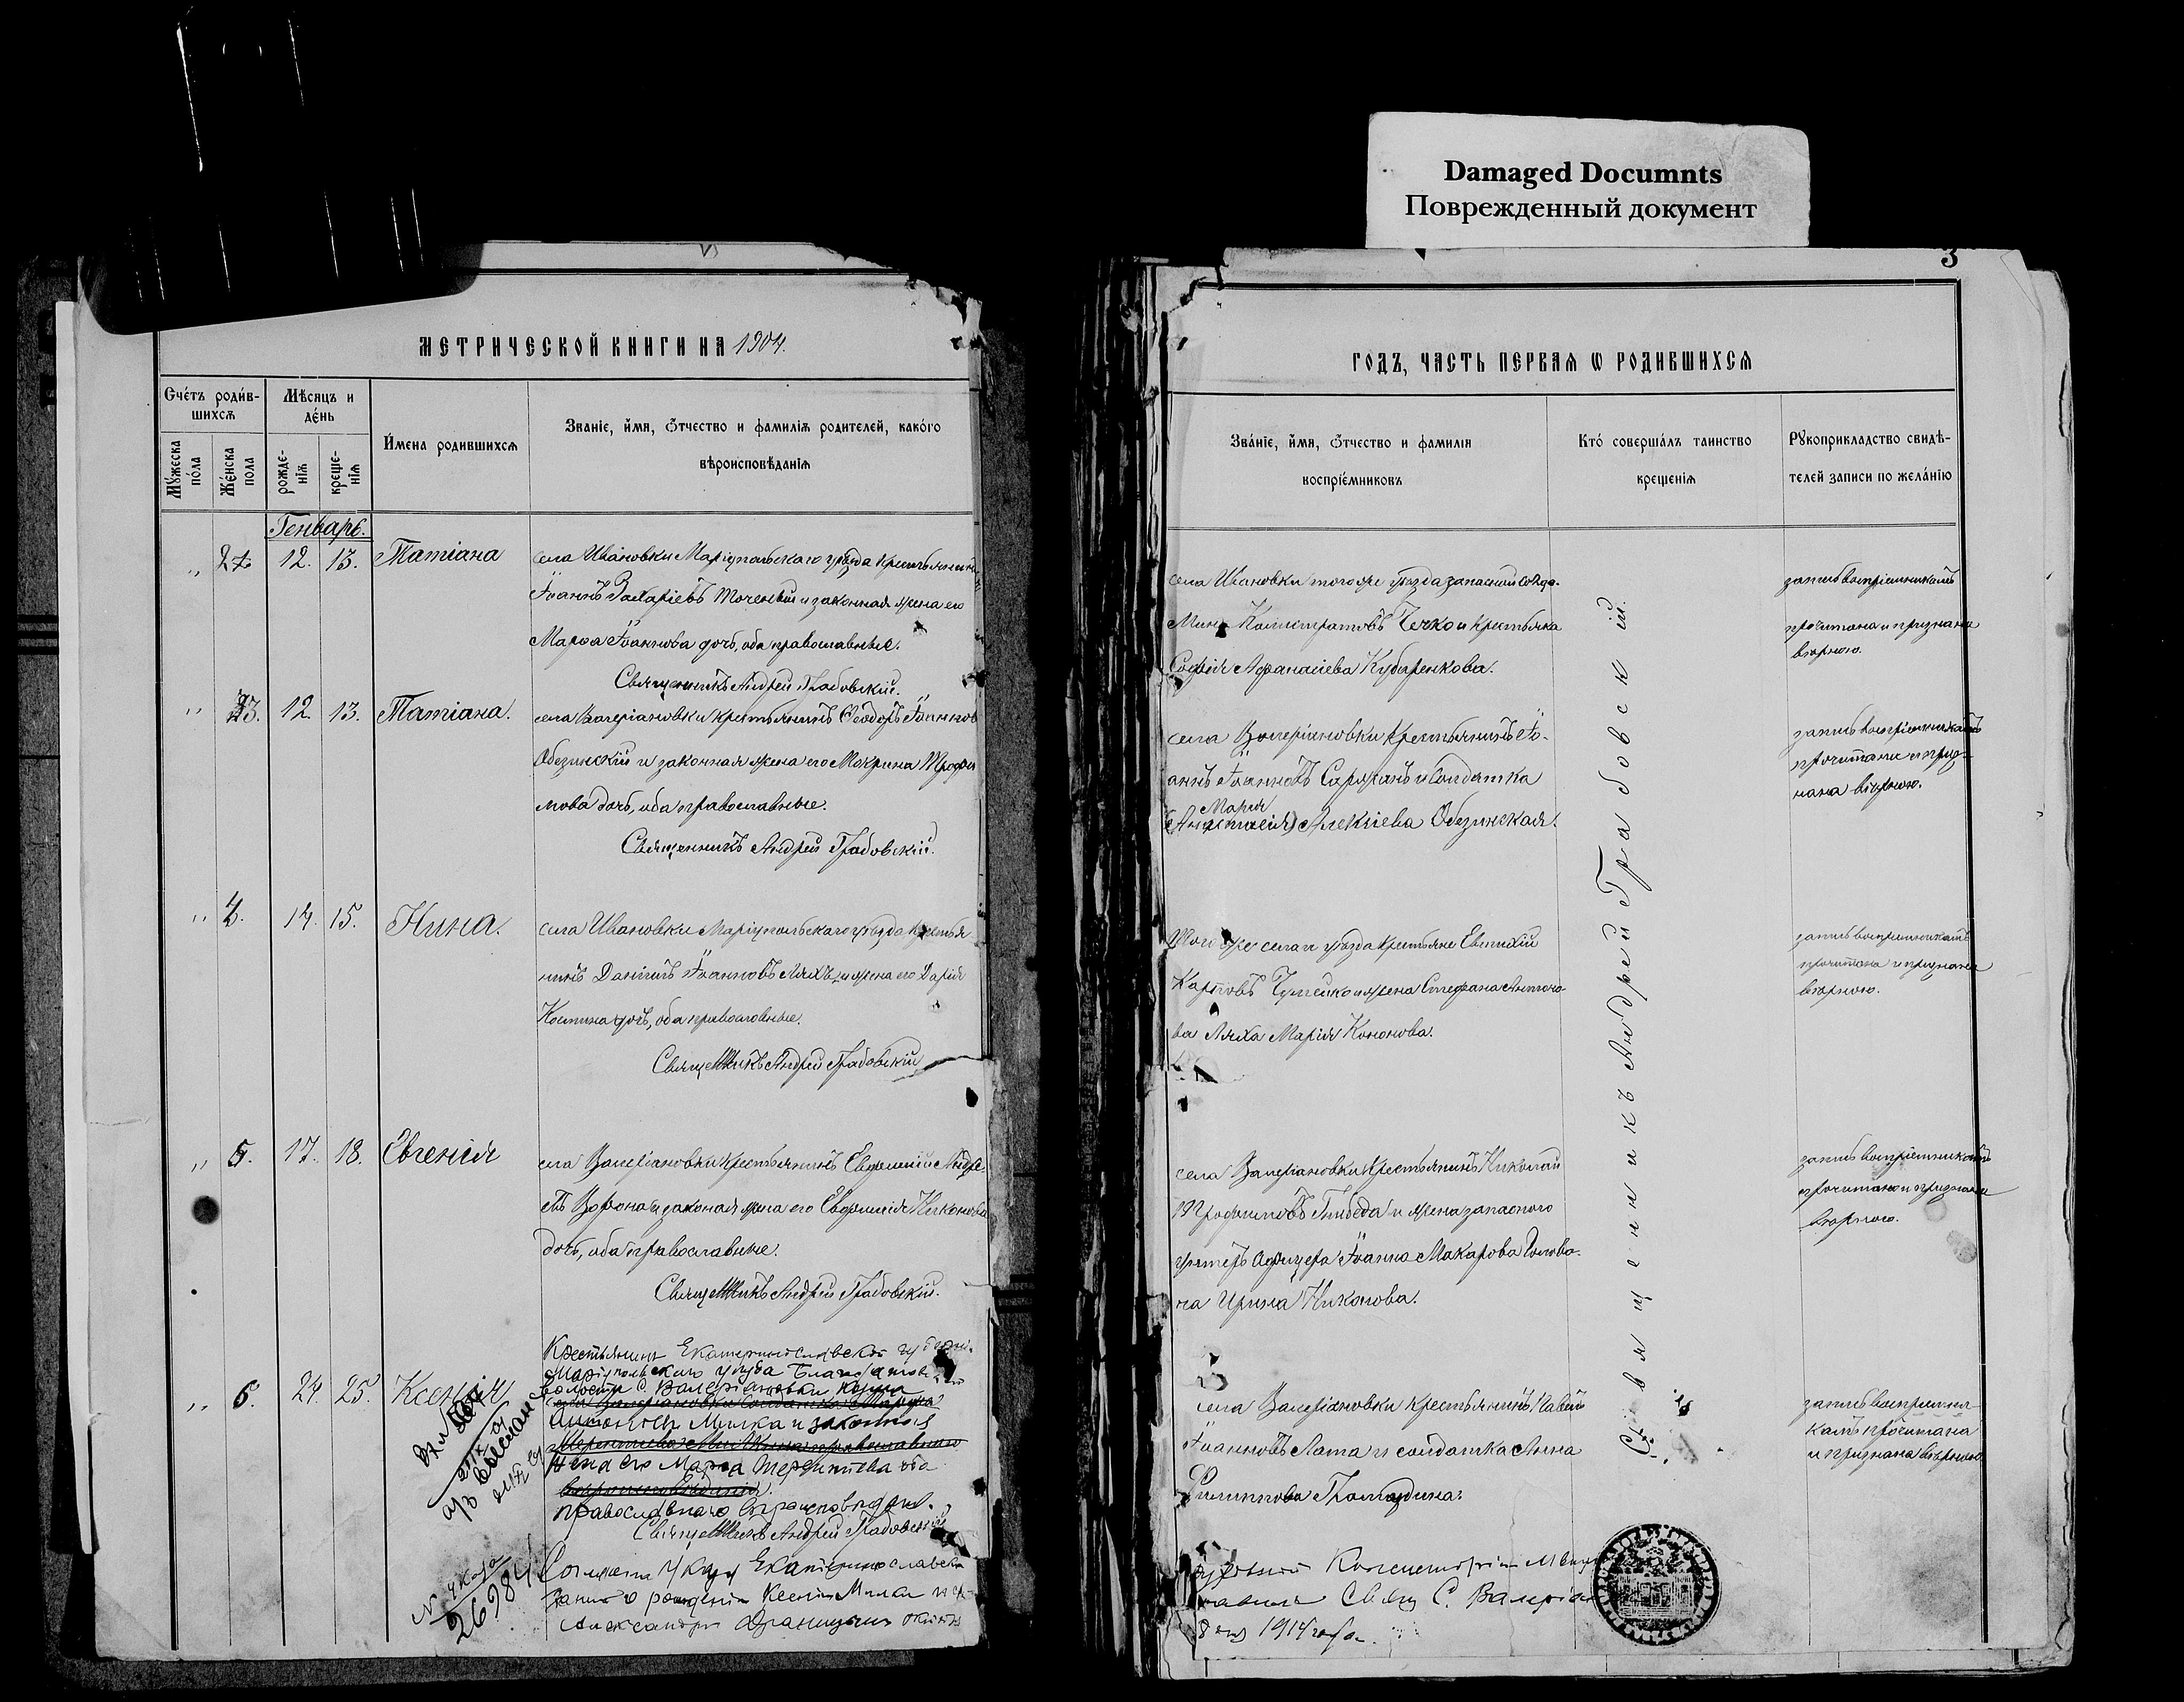 Damaged Documnts
Поврежденный документ
3
МЕТРИЧЕСКОЙ КНИГИ НА 1904.
ГОДЪ, ЧАСТЬ ПЕРВАѦ Ѡ РОДИВШИХСѦ
Счетъ родив-
шихсѧ
Мѣсяцъ и
день
Мꙋжеска
пола
Женска
пола
рожде-
нїѧ
креще-
нїѧ
Имена родившихсѧ
Званїе, имѧ, ѿчество и фамилїѧ родителей, какого
вѣроисповѣданїѧ
Званїе, имѧ, ѿчество и фамилїѧ
воспрїемниковъ
Кто совершалъ таинство
крещенїѧ
Рꙋкоприкладство свидѣ-
телей записи по желанїю
Генварь.
„ 2 12. 13. Татіана
села Ивановки Маріупольскаго уѣзда крестьянинъ
Іоаннъ Захаріевъ и законная жена его
Марѳа Іоаннова дочь, оба православные.
Священникъ Андрей Грабовскій.
села Ивановки того же уѣзда запасный солда-
Мина Калистратовъ Чечко и крестьянка
Софія Афанасіева Кубаренкова.
запись воспріемникамъ
прочитана и признана
вѣрною.
„ 3. 12. 13. Татіана.
села Валеріановки крестьянинъ Ѳеодоръ Іоаннов
Обезинскій и законная жена его Макрина Трофи
мова дочь, оба православные.
Священникъ Андрей Грабовскій.
села Валеріановки крестьянинъ Іо-
аннъ Іоанновъ Саржанъ и солдатка
Марія
(Анастасія) Алексіева Обезинская.
запись воспріемникамъ
прочитана и приз-
нана вѣрною.
„ 4. 14. 15. Нина.
села Ивановки Маріупольскаго уѣзда крестья
нинъ Даніилъ Іоанновъ Ляхъ и жена его Дарія
Космина дочь, оба православные.
Священникъ Андрей Грабовскій
Того же села и уѣзда крестьяне Евтихій
Карповъ и жена Стефана Антоно-
ва Ляха Марія Кононова.
запись воспріемникамъ
прочитана и признана
вѣрною.
„ 5. 17. 18. Евгенія
села Валеріановки крестьянинъ Евфимій Андре-
евъ Ворона и законная жена его Евфимія Никонова
дочь, оба православные.
Священникъ Андрей Грабовскій.
села Валеріановки крестьянинъ Николай
Трофимовъ Гнибеда и жена запаснаго
унтеръ офицера Іоанна Макарова Голова-
ча Ирина Никонова.
запись воспріемникамъ
прочитана и признана
вѣрною.
Крестьянинъ Екатеринославской губерні.
Маріупольскаго уѣзда
волости с. Валеріановки
„ 6. 24. 25. Ксенія
Антоньевъ Милка и законная
жена его Марѳа Терентіева оба
православнаго вѣроисповѣдан.
Священникъ Андрей Грабовскій
села Валеріановки крестьянинъ Павелъ
Іоанновъ Лата и солдатка Анна
Филиппова
запись воспріемни-
камъ прочитана
и признана вѣрною.
Священникъ Андрей Грабовскій.
№ указа
26984
Согласно Указу Екатеринославск
Духовной Консисторіи
о рожденіи Ксеніи Милки
Свящ С. Валеріан
Александръ
1914 года.